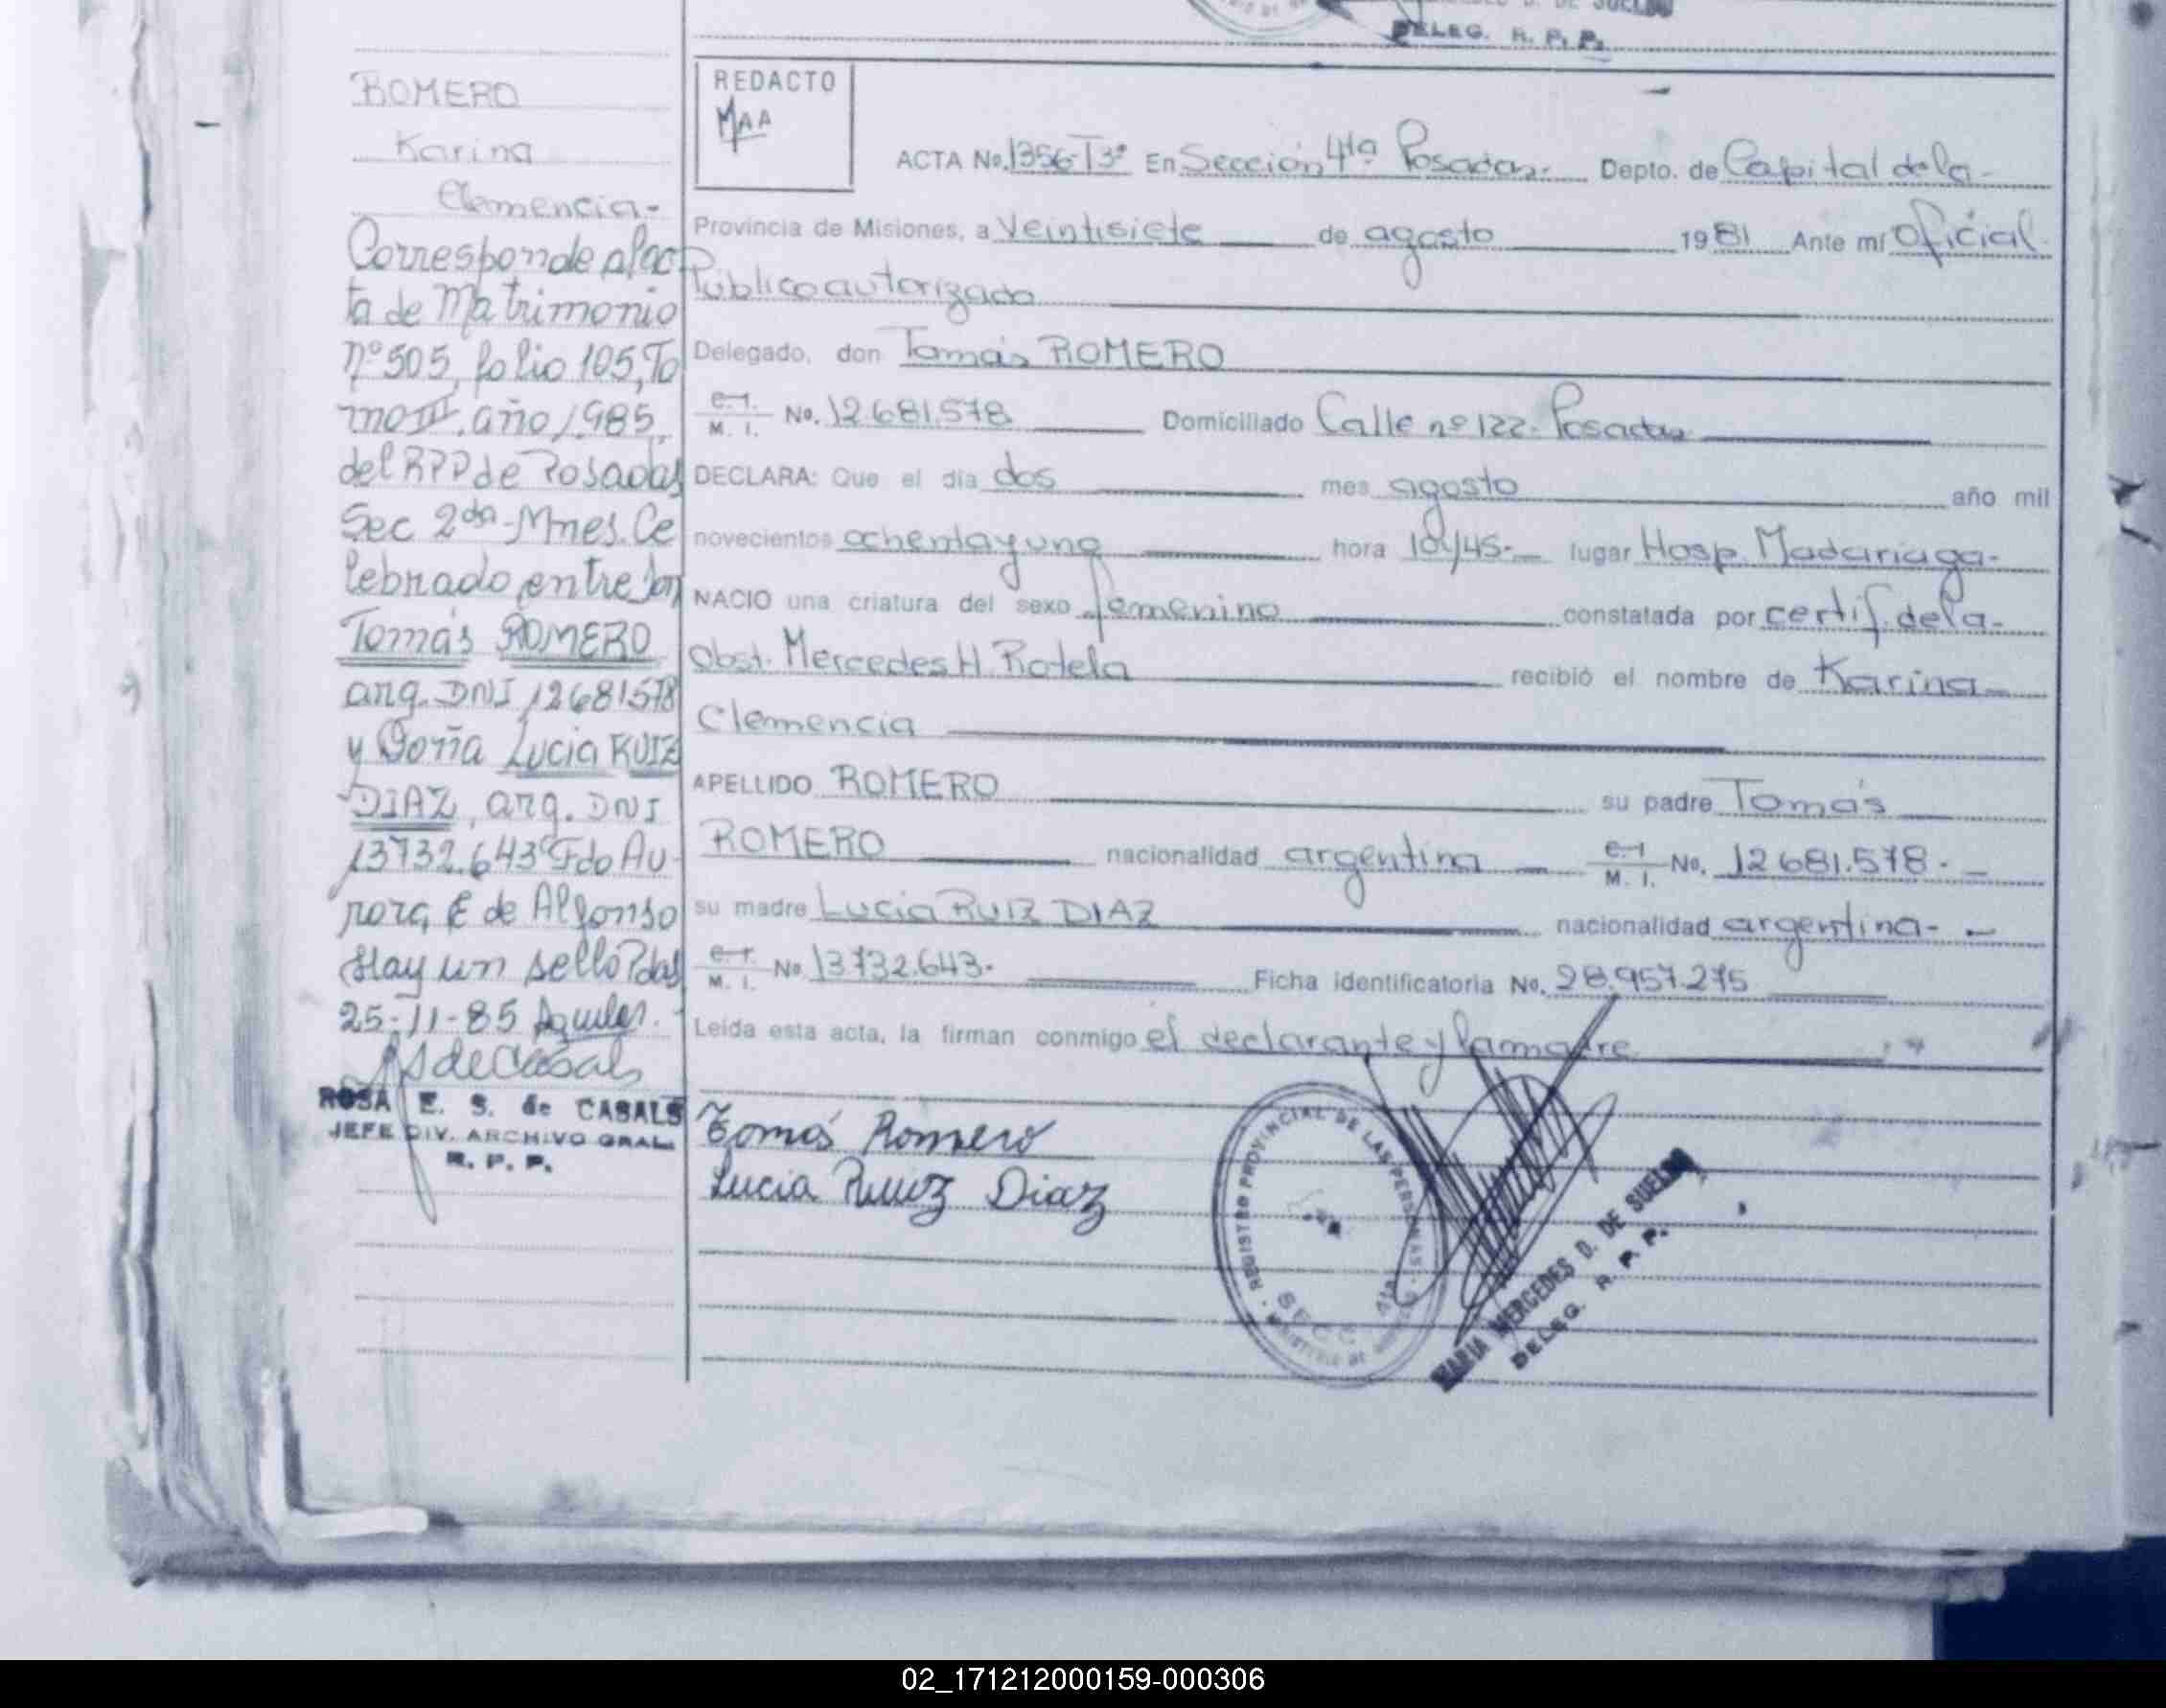 DELEG. R. P. P.
ROMERO
Karina
Clemencia-
Corresponde al ac
ta de Matrimonio
nº 505, folio 105, To
mo III. año 1.985,
del RPP de Posadas
Sec 2da - Mnes. Ce
lebrado entre Don
Tomás ROMERO
arg. DNI 12681578
y Doña Lucia RUIZ
DIAZ, arg. DNI
13732.643 Fdo Au
rora E de Alfonso
Hay un sello Pdas
25-11-85
ROSA E. S. de CASALS
JEFE DIV. ARCHIVO GRAL.
R. P. P.
REDACTO
MAA
ACTA No. 1356-Tº3º En Sección 4ta Posadas.- Depto. de Capital de la-
Provincia de Misiones, a Veintisiete de agosto 1981 Ante mí Oficial
Público autorizado
Delegado, don Tomás ROMERO
C.I. M. I. No. 12.681.578 Domiciliado Calle nº 122- Posadas
DECLARA: Que el día dos mes agosto año mil
novecientos ochenta y uno hora 10y45- lugar Hosp. Madariaga-
NACIO una criatura del sexo femenino constatada por certif. de la-
Obst. Mercedes H. Rotela recibió el nombre de Karina
Clemencia
APELLIDO ROMERO su padre Tomás
ROMERO nacionalidad argentina C.I. M. I. No. 12.681.578.-
su madre Lucia RUIZ DIAZ nacionalidad argentina-
C.I. M. I. No 13.732.643- Ficha identificatoria No. 28.957.275
Leída esta acta, la firman conmigo el declarante y la madre
Tomás Romero
Lucia Ruiz Diaz
REGISTRO PROVINCIAL DE LAS PERSONAS
SECC. 4ta
MARIA MERCEDES D. DE SUELDO
DELEG. R. P. P.
02_171212000159-000306